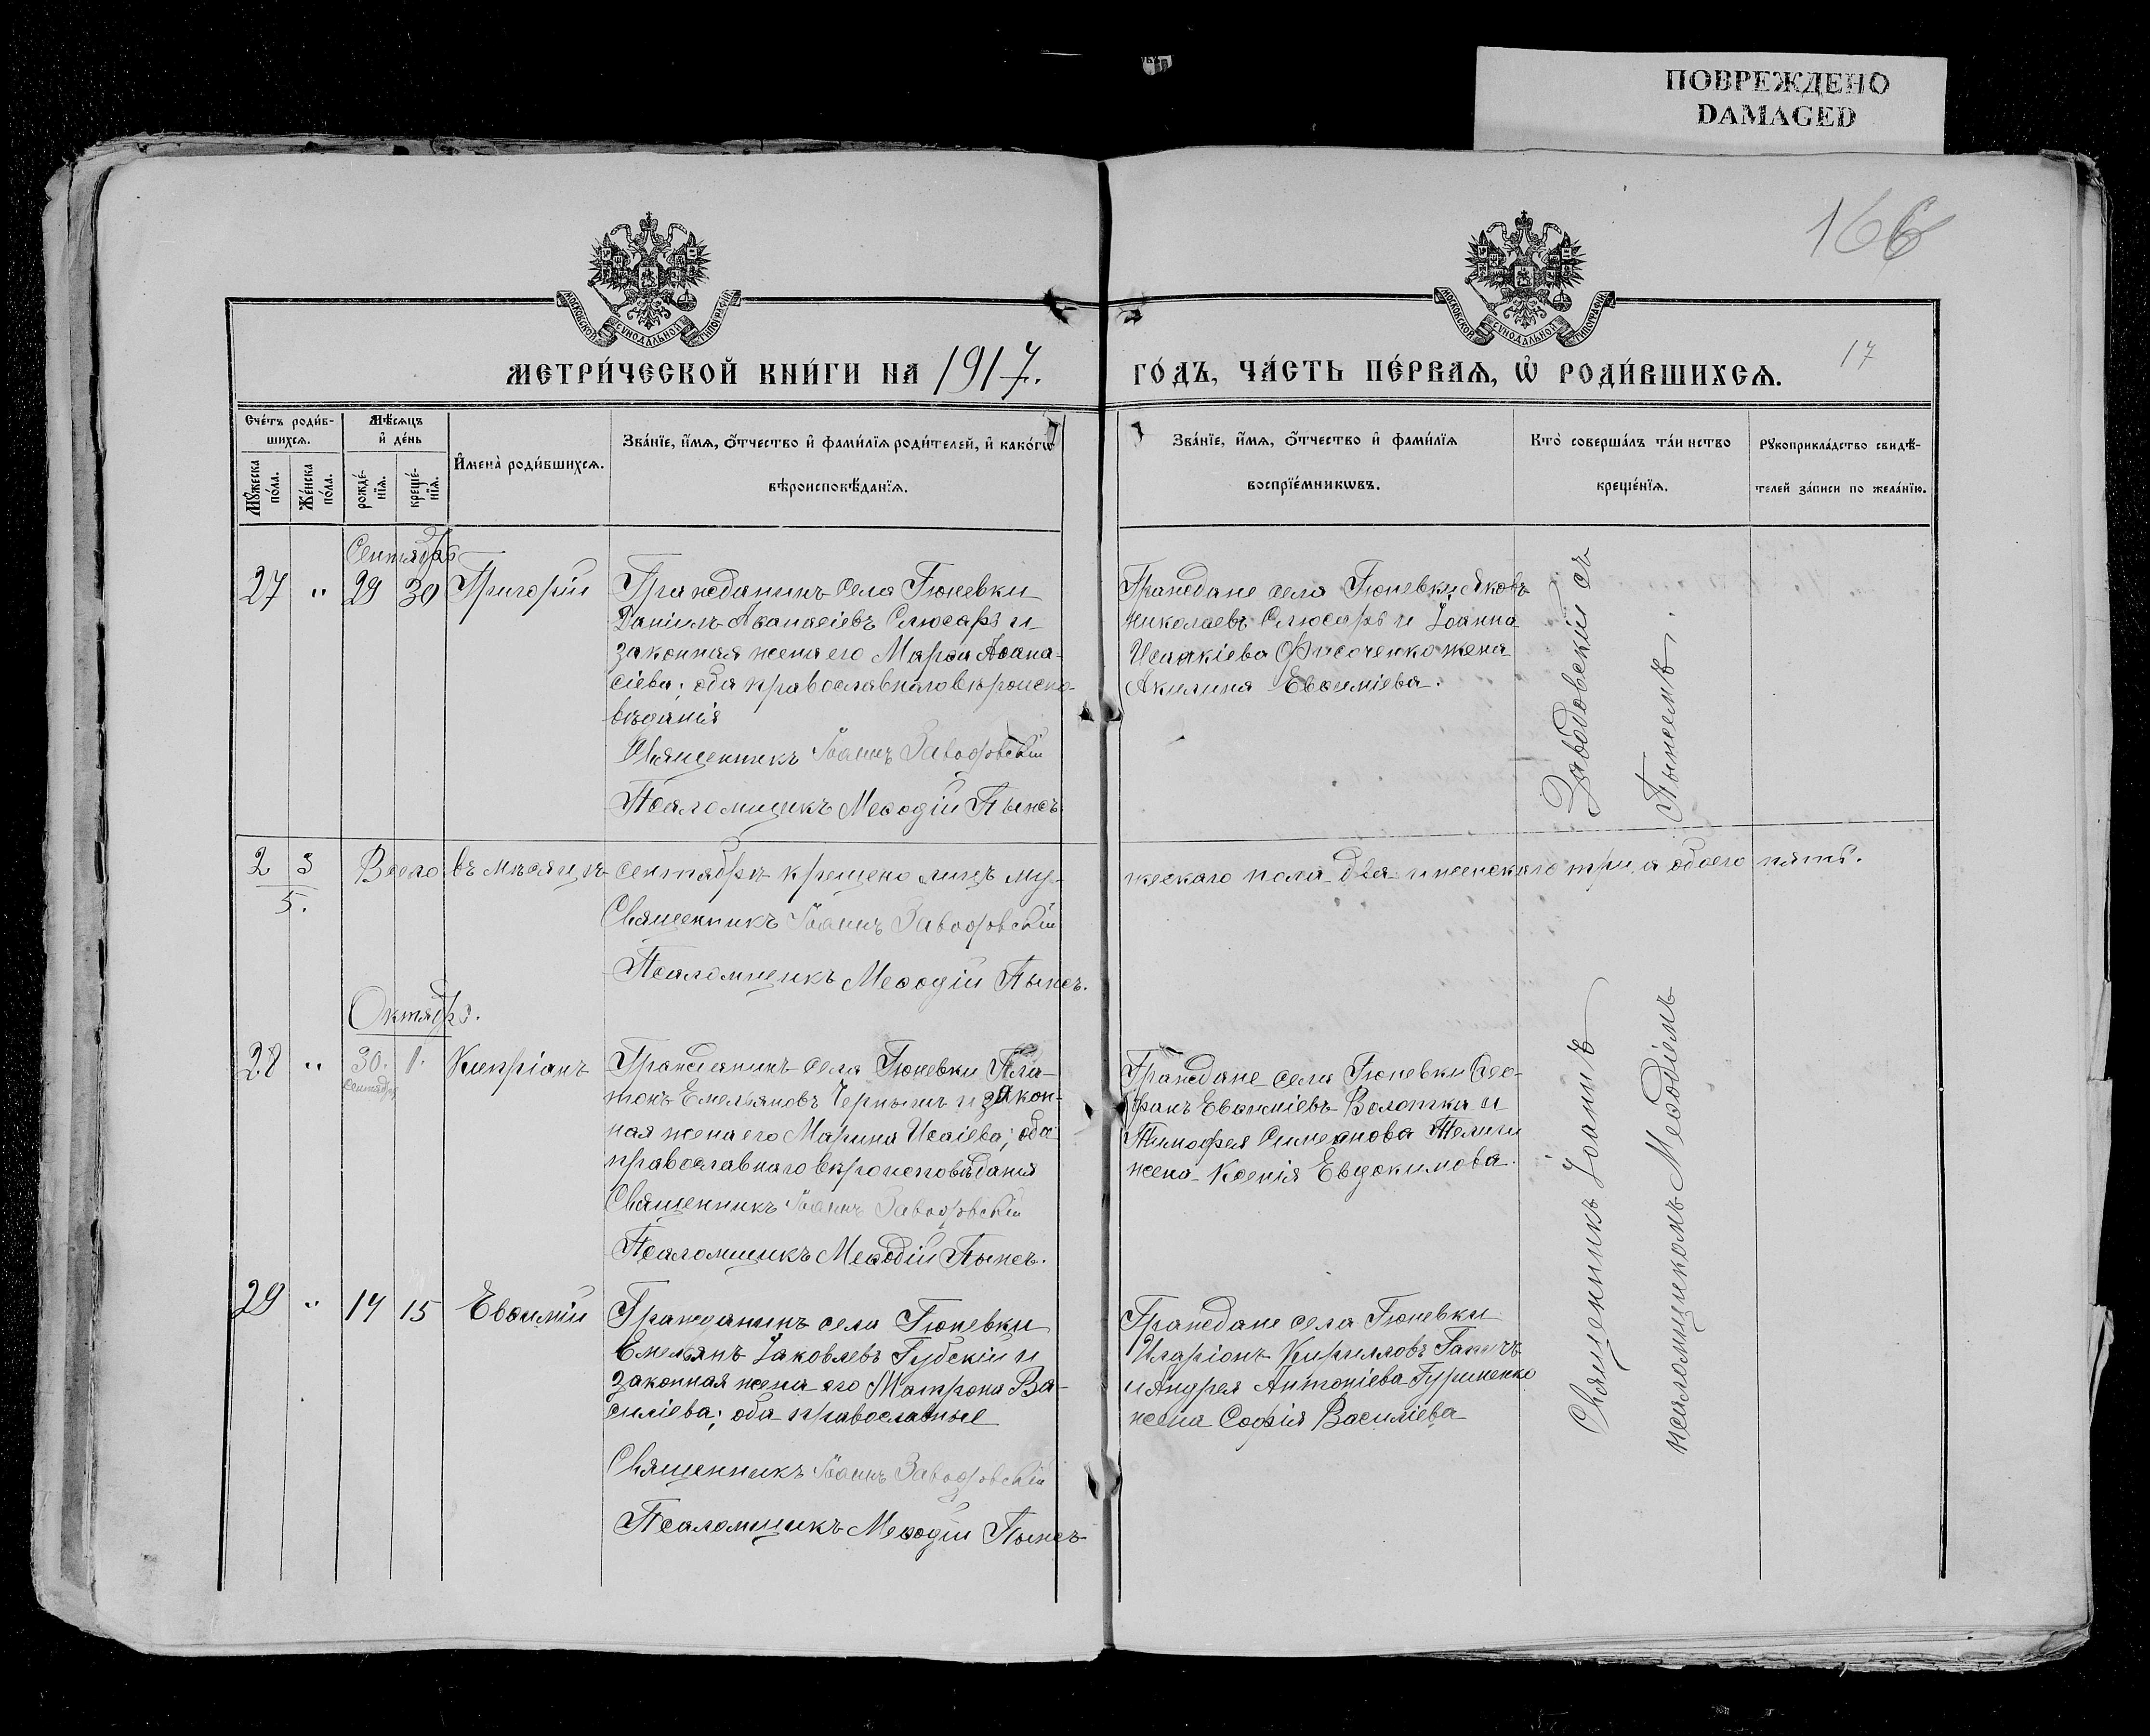 ПОВРЕЖДЕНО
DAMAGED
166
17
МОСКОВСКОЙ СѴНОДАЛЬНОЙ ТИПОГРАФІИ
МОСКОВСКОЙ СѴНОДАЛЬНОЙ ТИПОГРАФІИ
МЕТРИ́ЧЕСКОЙ КНИ́ГИ НА 1917.
ГО́ДЪ, ЧА́СТЬ ПЕ́РВАѦ, Ѡ҆ РОДИ́ВШИХСѦ.
Сче́тъ роди́б-
шихсѧ.
Мꙋ́жеска по́ла.
Же́нска по́ла.
Мѣ́сѧцъ
и҆ де́нь
рожде́-
нїѧ.
креще́-
нїѧ.
И҆мена̀ роди́вшихсѧ.
Зва́нїе, и҆́мѧ, ѻ҆́тчество и҆ фами́лїѧ роди́телей, и҆ како́гѡ
вѣроисповѣ́данїѧ.
Зва́нїе, и҆́мѧ, ѻ҆́тчество и҆ фами́лїѧ
воспрїе́мникѡвъ.
Кто̀ соверша́лъ та́инство
креще́нїѧ.
Рꙋкоприкла́дство свидѣ́-
телей за́писи по жела́нїю.
Сентябрь
27 " 29 30 Григорій
Гражданинъ села Гюневки
Даніилъ Аѳанасіевъ Слюсарь и
законная жена его Марѳа Аѳана-
сіева; оба православнаго вѣроиспо-
вѣданія
Священникъ Іоаннъ Заводовскій
Псаломщикъ Меѳодій Пынсъ.
Граждане села Гюневки Яковъ
Николаевъ Слюсарь и Іоанна
Исаакіева Фисоченко жена
Акилина Евѳиміева.
2 3
5.
Всего въ мѣсяцѣ сентябрѣ крещено лицъ му-
жескаго пола два и женскаго три, а обоего пять.
Священникъ Іоаннъ Заводовскій
Псаломщикъ Меѳодій Пынсъ.
Октябрь.
28 " 30. 1. Кипріанъ
сентября
Гражданинъ села Гюневки Пла-
тонъ Емельяновъ Чернышъ и закон-
ная жена его Марина Исаіева; оба
православнаго вѣроисповѣданія
Священникъ Іоаннъ Заводовскій
Псаломщикъ Меѳодій Пынсъ.
Граждане села Гюневки Ѳео-
фанъ Евѳиміевъ Волотка и
Тимофея Симеонова Телиги
жена Ксенія Евдокимова.
29 " 14 15 Евѳимій
Гражданинъ села Гюневки
Емельянъ Іаковлевъ Губскій и
законная жена его Матрона Ва-
силіева; оба православные
Священникъ Іоаннъ Заводовскій
Псаломщикъ Меѳодій Пынсъ
Граждане села Гюневки
Иларіонъ Кирилловъ
и Андрея Антоніева Гуриненко
жена Софія Василіева
Священникъ Іоаннъ Заводовскій съ
псаломщикомъ Меѳодіемъ Пынсемъ.